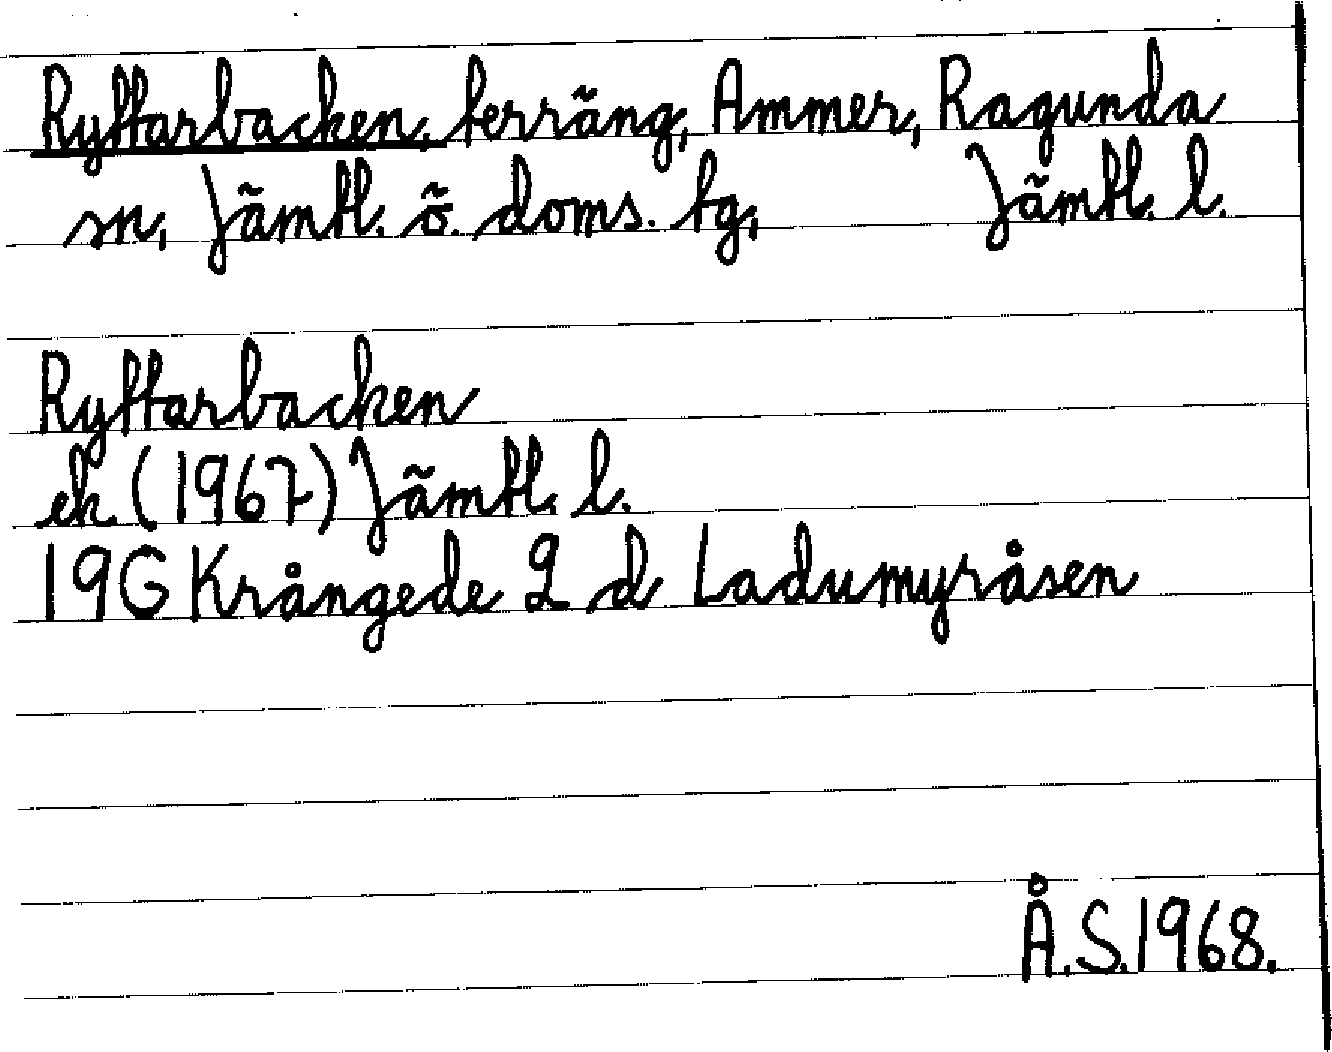 Ryttarbacken, terräng, Ammer, Ragunda
sn, Jämtl. ö. doms. tg, Jämtl. l.
Ryttarbacken
ek (1967) Jämtl. l.
19G Krångede 2 d Ladumyråsen
Å.S.1968.